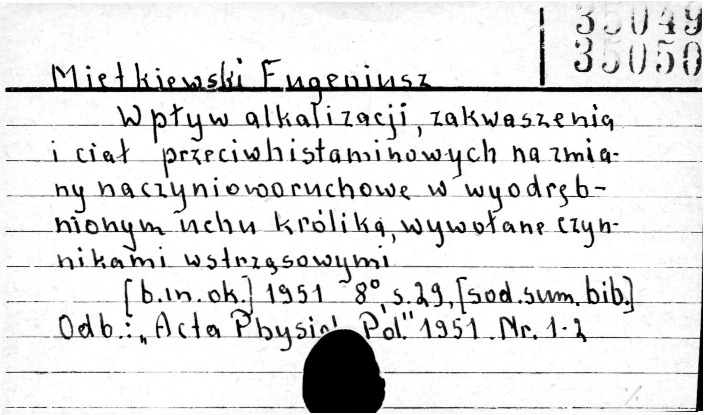 35049
35050
Miętkiewski Eugeniusz
Wpływ alkalizacji, zakwaszenia
i ciał przeciwhistaminowych na zmia-
ny naczynioworuchowe w wyodręb-
nionym uchu królika, wywołane czyn-
nikami wstrząsowymi
[b.m.ok.] 1951 8°, s.29, [sod.sum.bib.]
Odb.: "Acta Physiol. Pol." 1951. Nr. 1-2